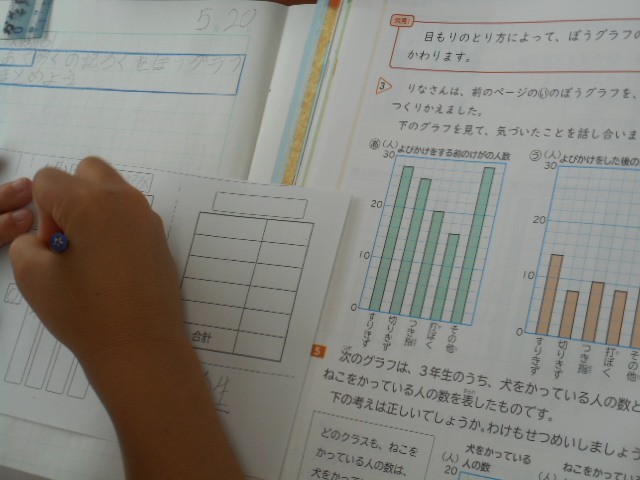 5.20
目もりのとり方によって、ぼうグラフの
かわります。
3
りなさんは、前のページの㋑のぼうグラフを、
つくりかえました。
下のグラフを見て、気づいたことを話し合いま
(人) よびかけをする前のけがの人数
30
20
10
0
すりきず
切りきず
つき指
打ぼく
その他
う (人) よびかけをした後の
30
20
10
0
すりきず
切りきず
つき指
打ぼく
その他
合計
5
次のグラフは、3年生のうち、犬をかっている人の数と
ねこをかっている人の数を表したものです。
下の考えは正しいでしょうか。わけもせつめいしましょう
どのクラスも、ねこを
かっている人の数は、
犬をかって
犬をかっている
人の数
(人)
20
ねこをかって
(人)